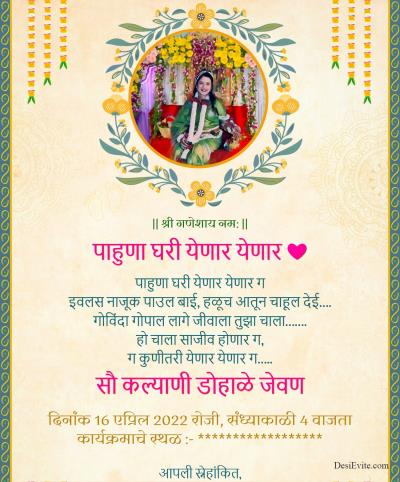 || श्री गणेशाय नम: ||
पाहुणा घरी येणार येणार
पाहुणा घरी येणार येणार ग
इवलस नाजूक पाउल बाई, हळूच आतून चाहूल देई....
गोविंदा गोपाल लागे जीवाला तुझा चाला.......
हो चाला साजीव होणार ग,
ग कुणीतरी येणार येणार ग.....
सौ कल्याणी डोहाळे जेवण
दिनांक 16 एप्रिल 2022 रोजी, संध्याकाळी 4 वाजता
कार्यक्रमाचे स्थळ :- ******************
आपली स्नेहांकित,
DesiEvite.com